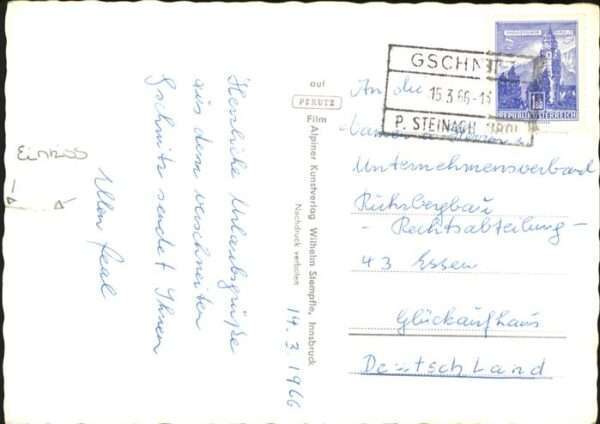 Herzliche Urlaubsgrüße
aus dem verschneiten
Gschnitz sendet Ihnen
14.3.1966
auf
PERUTZ
Film
Alpiner Kunstverlag Wilhelm Stempfle, Innsbruck
Nachdruck verboten
GSCHN
15.3.66-1
P. STEINACH TIROL
REPUBLIK ÖSTERREICH
An die
Damen u. Herren
Unternehmensverband
Ruhrbergbau
- Rechtsabteilung -
43 Essen
Glückaufhaus
Deutschland